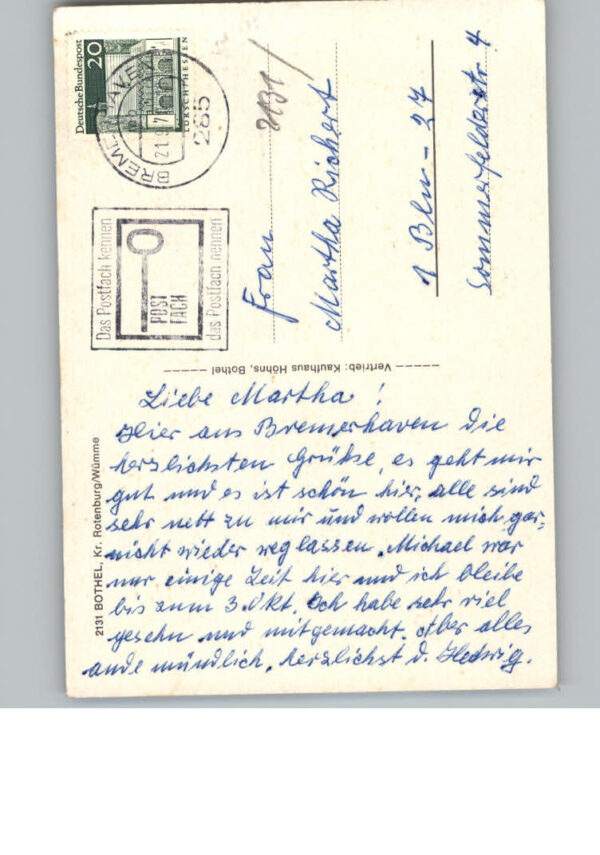 Deutsche Bundespost
20
LORSCH/HESSEN
BREMERHAVEN
21.9.7
285
Das Postfach kennen
POST
FACH
das Postfach nennen
2131
Frau
Martha Richert
1 Bln - 27
Sommerfelderstr 4
Vertrieb: Kaufhaus Höhns, Bothel
2131 BOTHEL, Kr. Rotenburg/Wümme
Liebe Martha!
Hier aus Bremerhaven die
herzlichsten Grüße, es geht mir
gut und es ist schön hier, alle sind
sehr nett zu mir und wollen mich gar-
nicht wieder weglassen. Michael war
nur einige Zeit hier und ich bleibe
bis zum 3. Okt. Ich habe sehr viel
gesehn und mitgemacht. Aber alles
ande mündlich, herzlichst d. Hedwig.